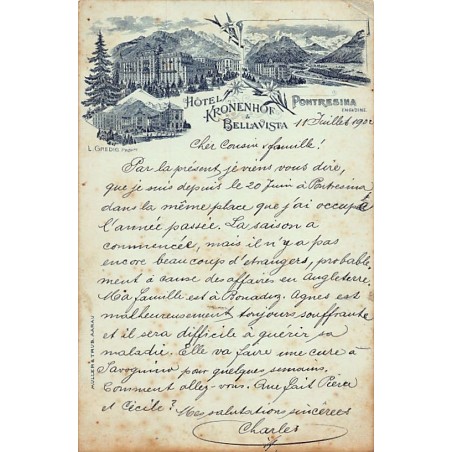 HÔTEL
KRONENHOF
&
BELLAVISTA
PONTRESINA
ENGADINE.
L. GREDIG PROPR.
11 Juillet 1902
Cher Cousin & famille!
Par la présent je viens vous dire,
que je suis depuis le 20 Juin à Pontresina
dans la même place que j'ai occupé
l'année passée. La saison a
commencée, mais il n'y a pas
encore beaucoup d'etrangers, probable-
ment à cause des affaires en Angleterre.
Ma famille est à Bonaduz. Agnes est
malheureusement toujours souffrante
et il sera difficile à guérir sa
maladie. Elle va faire une cure à
Savognino pour quelques semains.
Comment allez-vous. Que fait Piera
et Cécile? Mes salutations sincères
Charles
MÜLLER & TRÜB, AARAU